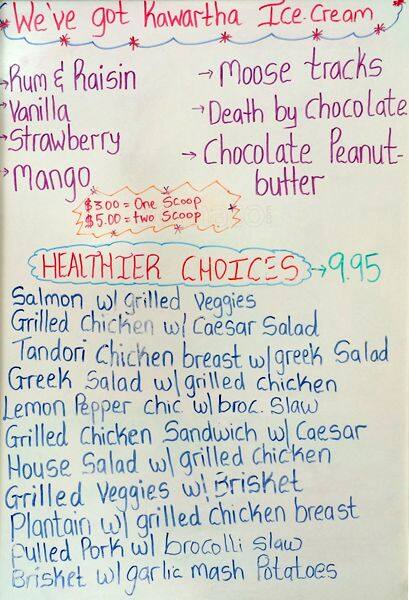 We've got Kawartha Ice-Cream
→Rum & Raisin
→Vanilla
→Strawberry
→Mango
→Moose tracks
→Death by Chocolate
→Chocolate Peanut-
butter
$3.00 = One Scoop
$5.00 = two Scoop
HEALTHIER CHOICES →9.95
Salmon w/ grilled Veggies
Grilled Chicken w/ Caesar Salad
Tandori Chicken breast w/ greek Salad
Greek Salad w/ grilled chicken
Lemon Pepper chic w/ broc. Slaw
Grilled Chicken Sandwich w/ Caesar
House Salad w/ grilled Chicken
Grilled Veggies w/ Brisket
Plantain w/ grilled chicken breast
Pulled Pork w/ brocolli slaw
Brisket w/ garlic mash Potatoes